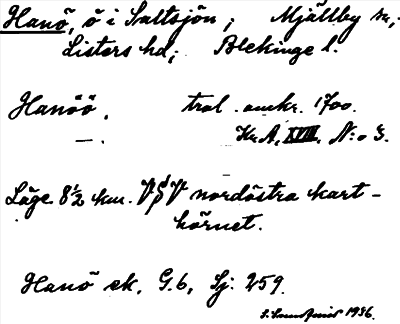 Hanö, ö i Saltsjön; Mjällby sn,;
Listers hd; Blekinge l.
Hanöö. trol. omkr. 1700.
—. Kr.A. XVIII. N:o 3.
Läge. 8½ km. VSV nordöstra kart-
hörnet.
Hanö ek. G.6, Sj: 259.
1936.